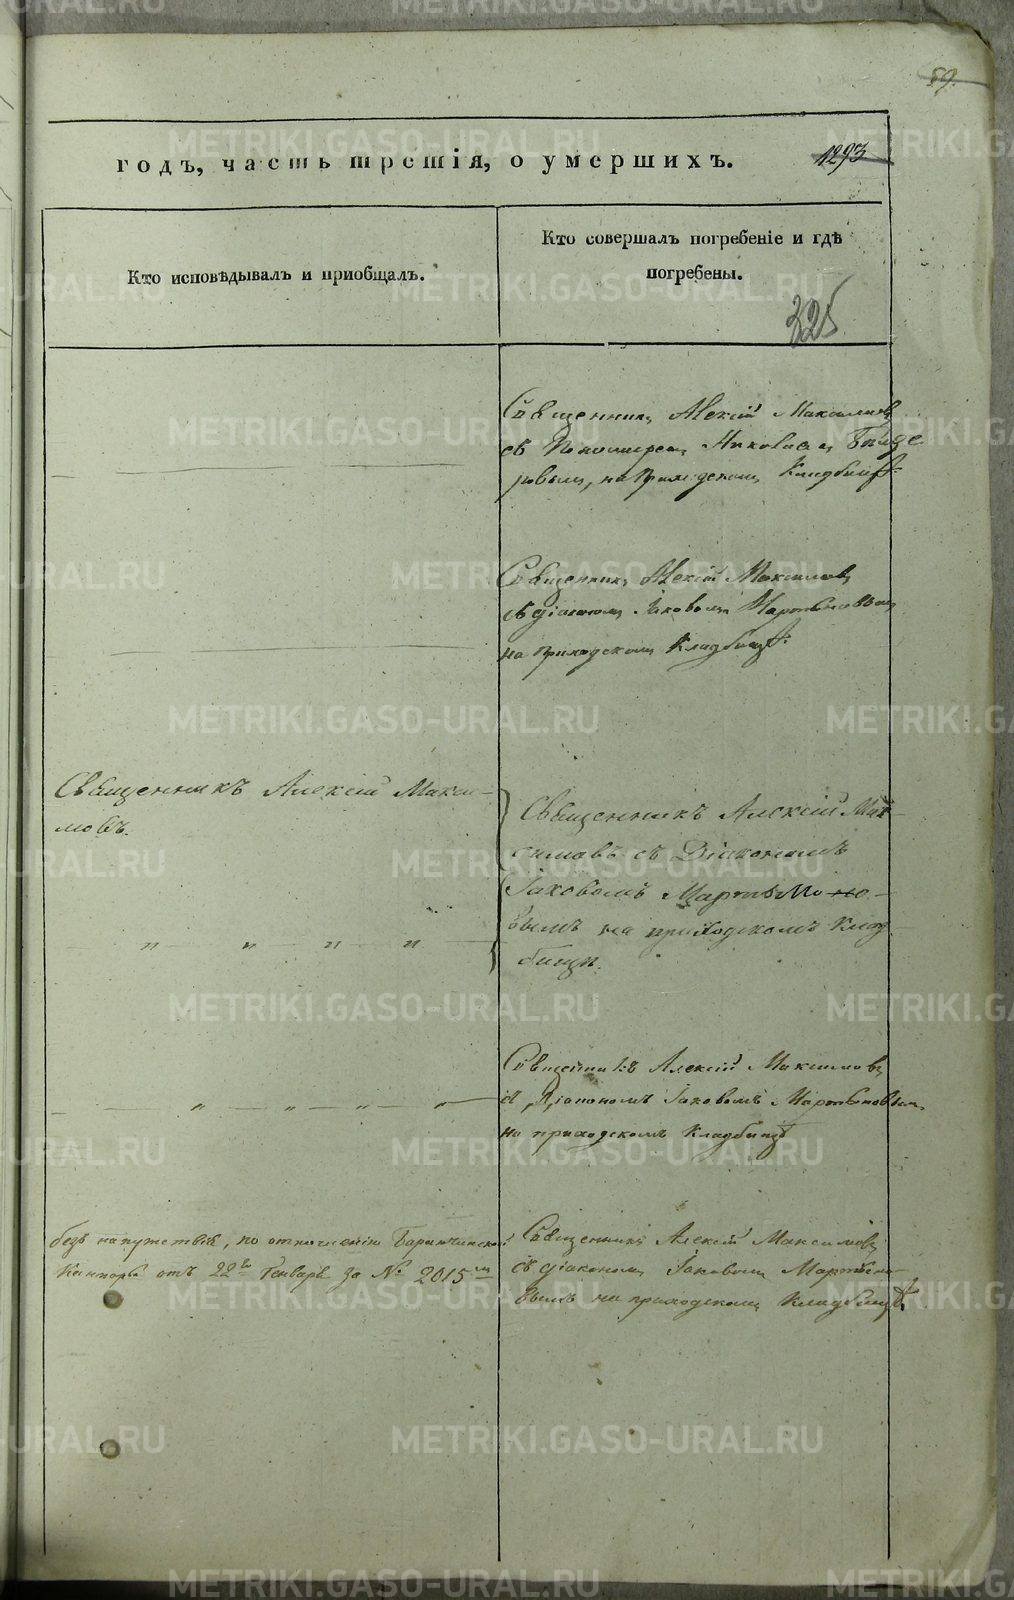 59.
годъ, часть третія, о умершихъ.
1293
Кто исповѣдывалъ и приобщалъ.
Кто совершалъ погребеніе и гдѣ
погребены.
325
Священникъ Алексій Максимовъ
съ Пономаремъ Николаемъ
на приходскомъ Кладбищѣ.
Священникъ Алексій Максимовъ
съ діакономъ Іаковомъ Мартыновымъ
на приходскомъ Кладбищѣ.
Священникъ Алексій Макси-
мовъ.
Священникъ Алексій Мак-
симовъ съ Діакономъ
Іаковомъ Мартыно-
вымъ на приходскомъ Клад-
бищѣ.
" " " "
Священникъ Алексій Максимовъ
съ Діакономъ Іаковомъ Мартыновымъ
на приходскомъ Кладбищѣ
" " " "
безъ напутствія, по отношенію Баранчинской
Конторы отъ 22го Генваря за № 2015мъ
Священникъ Алексій Максимовъ
съ діакономъ Іаковомъ Мартыно-
вымъ на приходскомъ Кладбищѣ.
METRIKI.GASO-URAL.RU